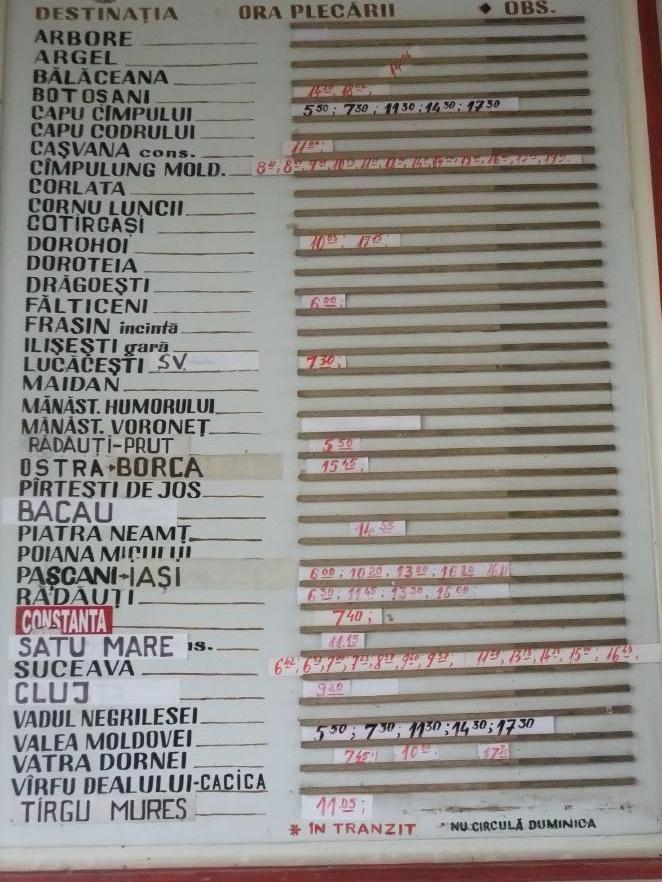 DESTINAȚIA ORA PLECĂRII ♦ OBS.
ARBORE
ARGEL
BĂLĂCEANA
BOTOȘANI
CAPU CÎMPULUI 5⁵⁰; 7³⁰; 11³⁰; 14³⁰; 17³⁰
CAPU CODRULUI
CAȘVANA cons. 11⁰⁰;
CÎMPULUNG MOLD.
CORLATA
CORNU LUNCII
COTÎRGAȘI
DOROHOI 10⁰⁵;
DOROTEIA
DRĂGOEȘTI
FĂLTICENI 6⁰⁰;
FRASIN incintă
ILIȘEȘTI gară
LUCĂCEȘTI SV. 7³⁰;
MAIDAN
MĂNĂST. HUMORULUI
MĂNĂST. VORONEȚ
RĂDĂUȚI-PRUT 5⁵⁰
OSTRA-BORCA 15⁴⁵;
PÎRTEȘTI DE JOS
BACAU
PIATRA NEAMȚ 14⁵⁵
POIANA MICULUI
PAȘCANI-IAȘI 6⁰⁰; 10²⁰; 13⁰⁰;
RĂDĂUȚI 6³⁰; 11⁴⁵; 13³⁰; 16⁰⁰;
CONSTANTA 7⁴⁰;
SATU MARE ns. 11¹⁵
SUCEAVA
CLUJ 9²⁰
VADUL NEGRILESEI 5⁵⁰; 7³⁰; 11³⁰; 14³⁰; 17³⁰
VALEA MOLDOVEI
VATRA DORNEI 7⁴⁵;
VÎRFU DEALULUI-CACICA
TÎRGU MUREȘ 11⁰⁵;
* ÎN TRANZIT ♦ NU CIRCULĂ DUMINICA